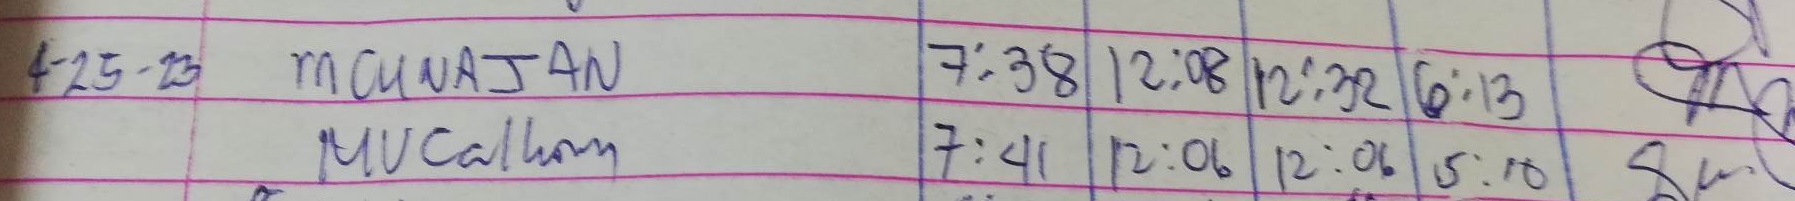 4-25-23 MCUNAJAN 7:38 12:08 12:32 6:13
MVCalhoun 7:41 12:06 12:06 5:10